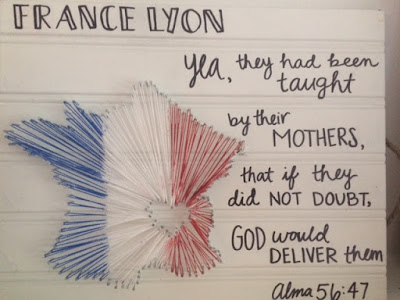 FRANCE LYON
yea, they had been
taught
by their
MOTHERS,
that if they
did NOT DOUBT,
GOD would
DELIVER them
Alma 56:47